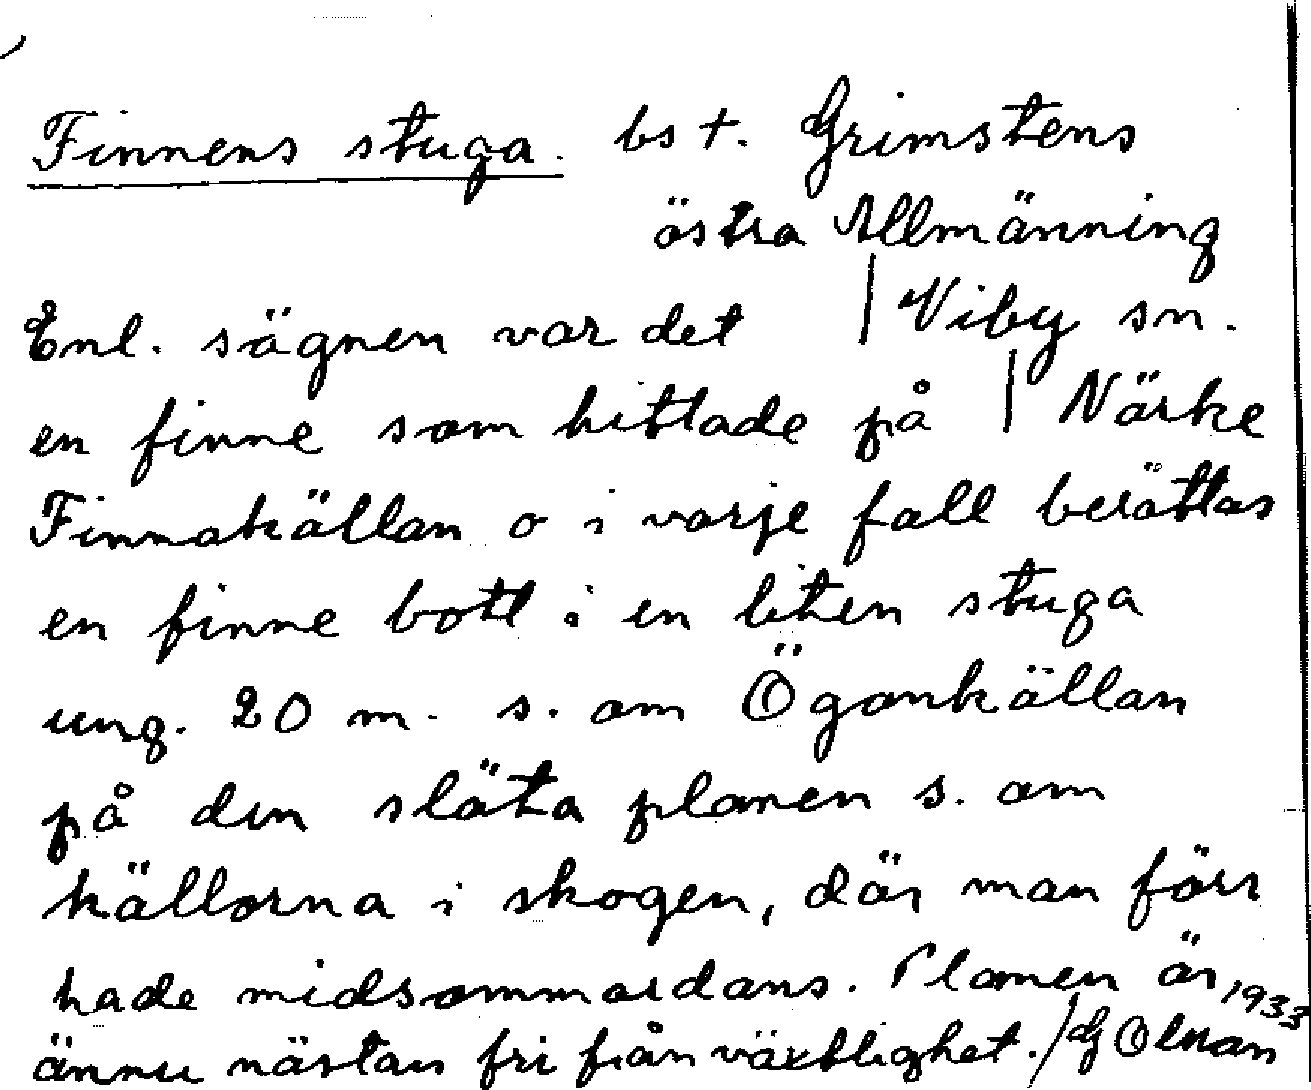 Finnens stuga. bs t. Grimstens
östra Allmänning
Enl. sägnen var det / Viby sn.
en finne som hittade på / Närke
Finnakällan o i varje fall berättas
en finne bott i en liten stuga
ung. 20 m. s. om Ögonkällan
på den släta planen s. om
källorna i skogen, där man förr
hade midsommardans. Planen är 1933
ännu nästan fri från växtlighet. / G Olman